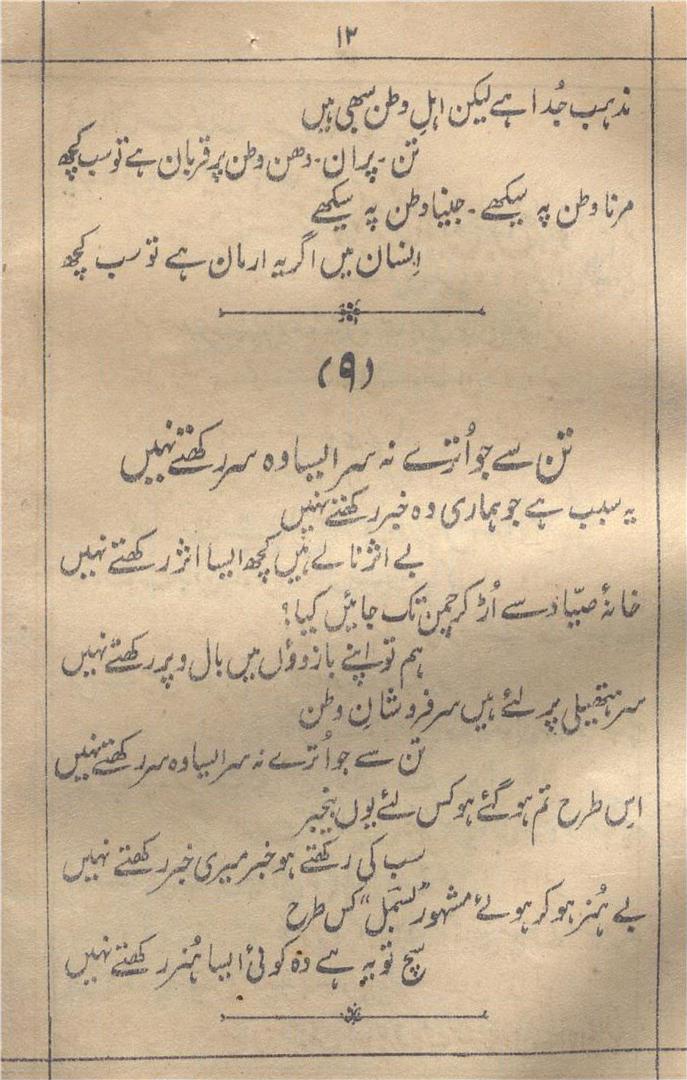 ۱۲
مذہب جُدا ہے لیکن اہلِ وطن سبھی ہیں
تن۔پران۔دھن وطن پر قربان ہے تو سب کچھ
مرنا وطن پہ سیکھے ۔ جینا وطن پہ سیکھے
اِنسان میں اگر یہ ارمان ہے تو سب کچھ
(۹)
تن سے جو اُترے نہ سر ایسا وہ سر رکھتے نہیں
یہ سبب ہے جو ہماری وہ خبر رکھتے نہیں
بے اثر نالے ہیں کچھ ایسا اثر رکھتے نہیں
خانۂ صیّاد سے اُڑ کر چمن تک جائیں کیا؟
ہم تو اپنے بازوؤں میں بال و پر رکھتے نہیں
سر ہتھیلی پر لئے ہیں سرفروشانِ وطن
تن سے جو اُترے نہ سر ایسا وہ سر رکھتے نہیں
اِس طرح تم ہو گئے ہو کس لئے یوں بیخبر
سب کی رکھتے ہو خبر میری خبر رکھتے نہیں
بے ہُنر ہو کر ہوئے مشہور "بسمل" کس طرح
سچ تو یہ ہے وہ کوئی ایسا ہُنر رکھتے نہیں